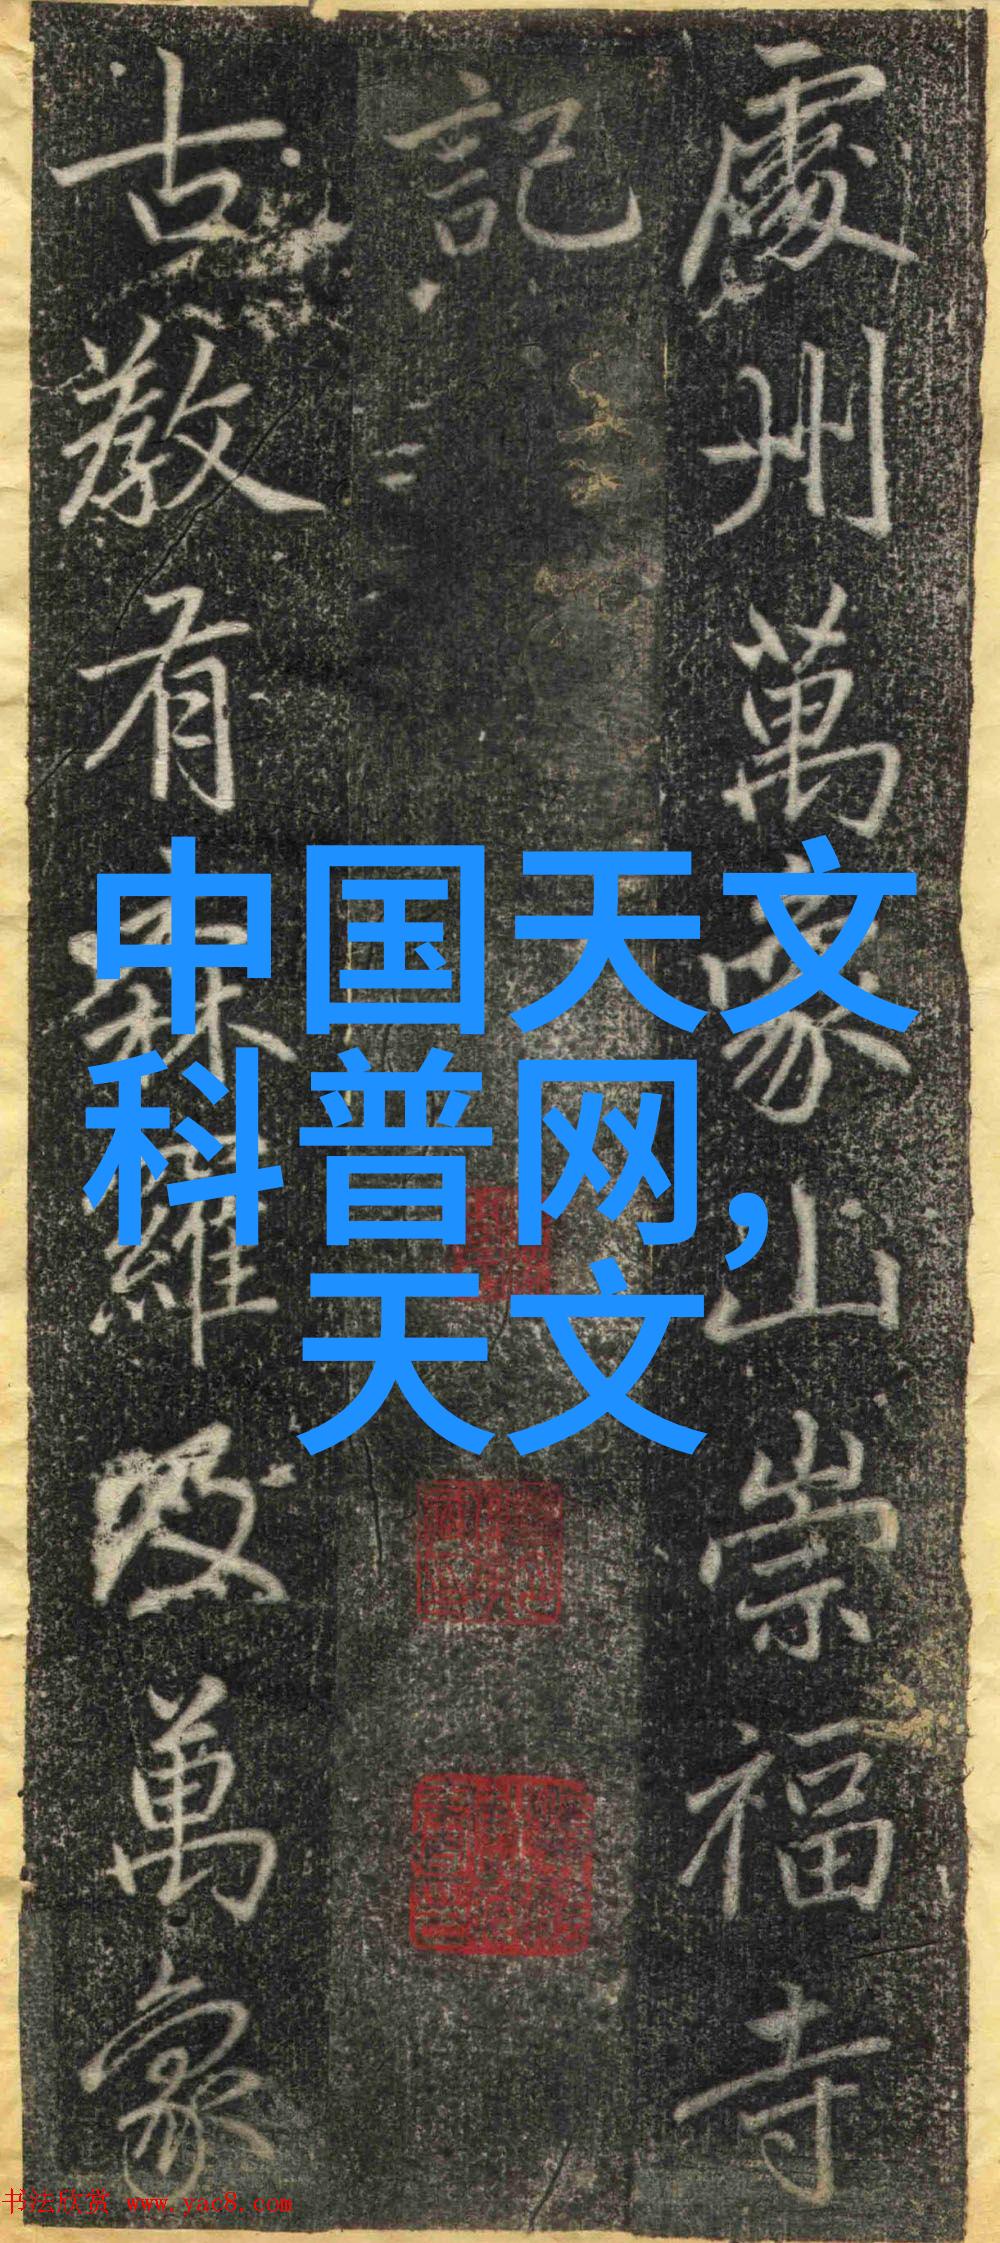 處州萬象山崇福寺
記
古教有森羅及萬象
中国天文
科普网，
天文
书法欣赏 www.yac8.com